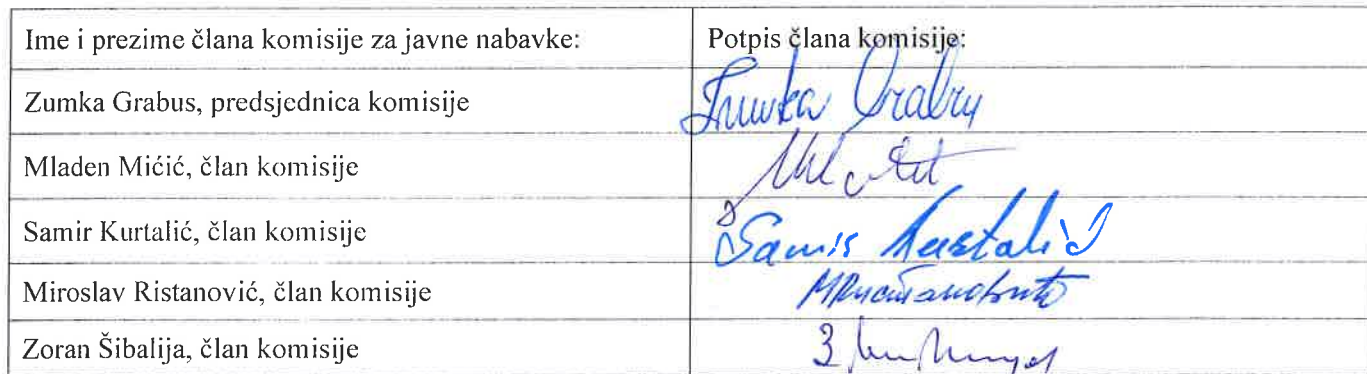 Ime i prezime člana komisije za javne nabavke: Potpis člana komisije:
Zumka Grabus, predsjednica komisije
Mladen Mićić, član komisije
Samir Kurtalić, član komisije Samir Kurtalić
Miroslav Ristanović, član komisije
Zoran Šibalija, član komisije